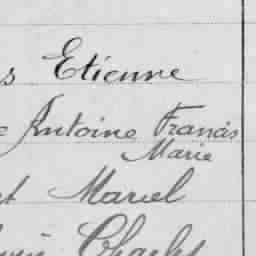 s Etienne
Antoine Francis
Marie
t Marcel
Charles